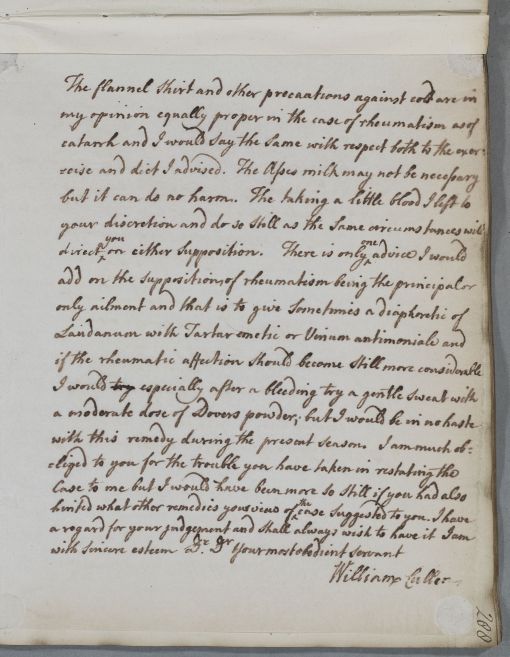 The flannel Shirt and other precautions against cold are in
my opinion equally proper in the case of rheumatism as of
catarrh and I would Say the Same with respect both to the exer-
-cise and diet I advised. The Asses milk may not be necessary
but it can do no harm. The taking a little blood I left to
your discretion and do so still as the Same circumstances will
direct you on either Supposition. There is only one advice I would
add on the Supposition of rheumatism being the principal or
only ailment and that is to give Sometimes a diaphoretic of
Laudanum with Tartar emetic or Vinum antimoniale and
if the rheumatic affection Should become Still more considerable
I would try especially after a bleeding try a gentle Sweat with
a moderate dose of Dovers powder, but I would be in no haste
with this remedy during the present Season. I am much ob-
-liged to you for the trouble you have taken in restating the
Case to me but I would have been more so Still if you had also
hinted what other remedies your view of the case Suggested to you. I have
a regard for your judgement and Shall always wish to have it I am
with Sincere esteem Dr. Sr Your most obedient Servant
William Cullen
200